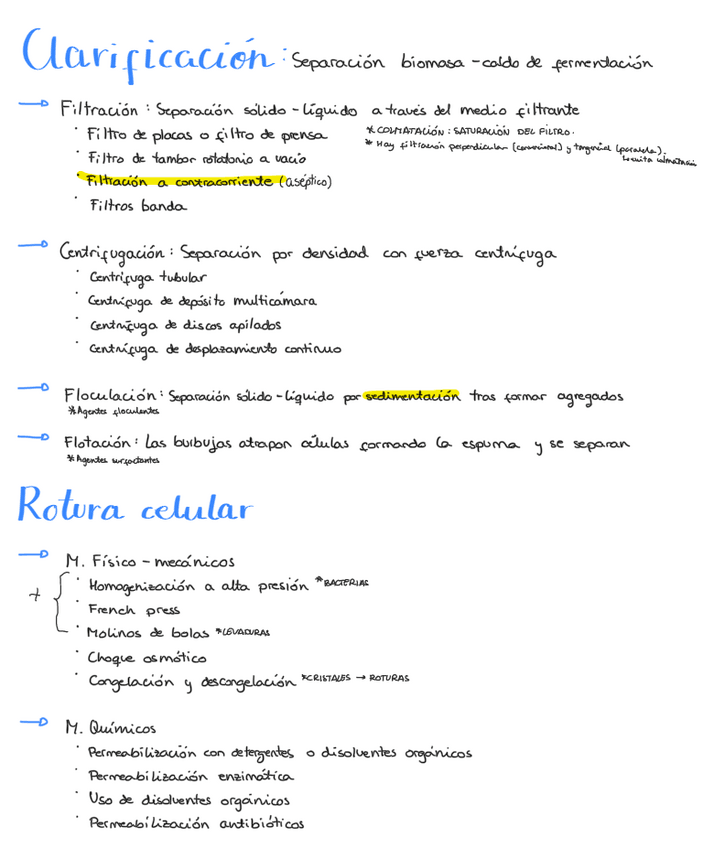 Clarificación: Separación biomasa - caldo de fermentación
Filtración: Separación sólido - líquido a través del medio filtrante
· Filtro de placas o filtro de prensa
* COLMATACIÓN: SATURACIÓN DEL FILTRO.
· Filtro de tambor rotatorio a vacío
* Hay filtración perpendicular (convencional) y tangencial (paralela).
↳ evita colmatación
· Filtración a contracorriente (aséptico)
· Filtros banda
Centrifugación: Separación por densidad con fuerza centrífuga
· Centrífuga tubular
· Centrífuga de depósito multicámara
· Centrífuga de discos apilados
· Centrífuga de desplazamiento continuo
Floculación: Separación sólido - líquido por sedimentación tras formar agregados
* Agentes floculantes
Flotación: Las burbujas atrapan células formando la espuma y se separan
* Agentes surfactantes
Rotura celular
M. Físico - mecánicos
· Homogenización a alta presión * BACTERIAS
+
· French press
· Molinos de bolas * LEVADURAS
· Choque osmótico
· Congelación y descongelación * CRISTALES → ROTURAS
M. Químicos
· Permeabilización con detergentes o disolventes orgánicos
· Permeabilización enzimática
· Uso de disolventes orgánicos
· Permeabilización antibióticos